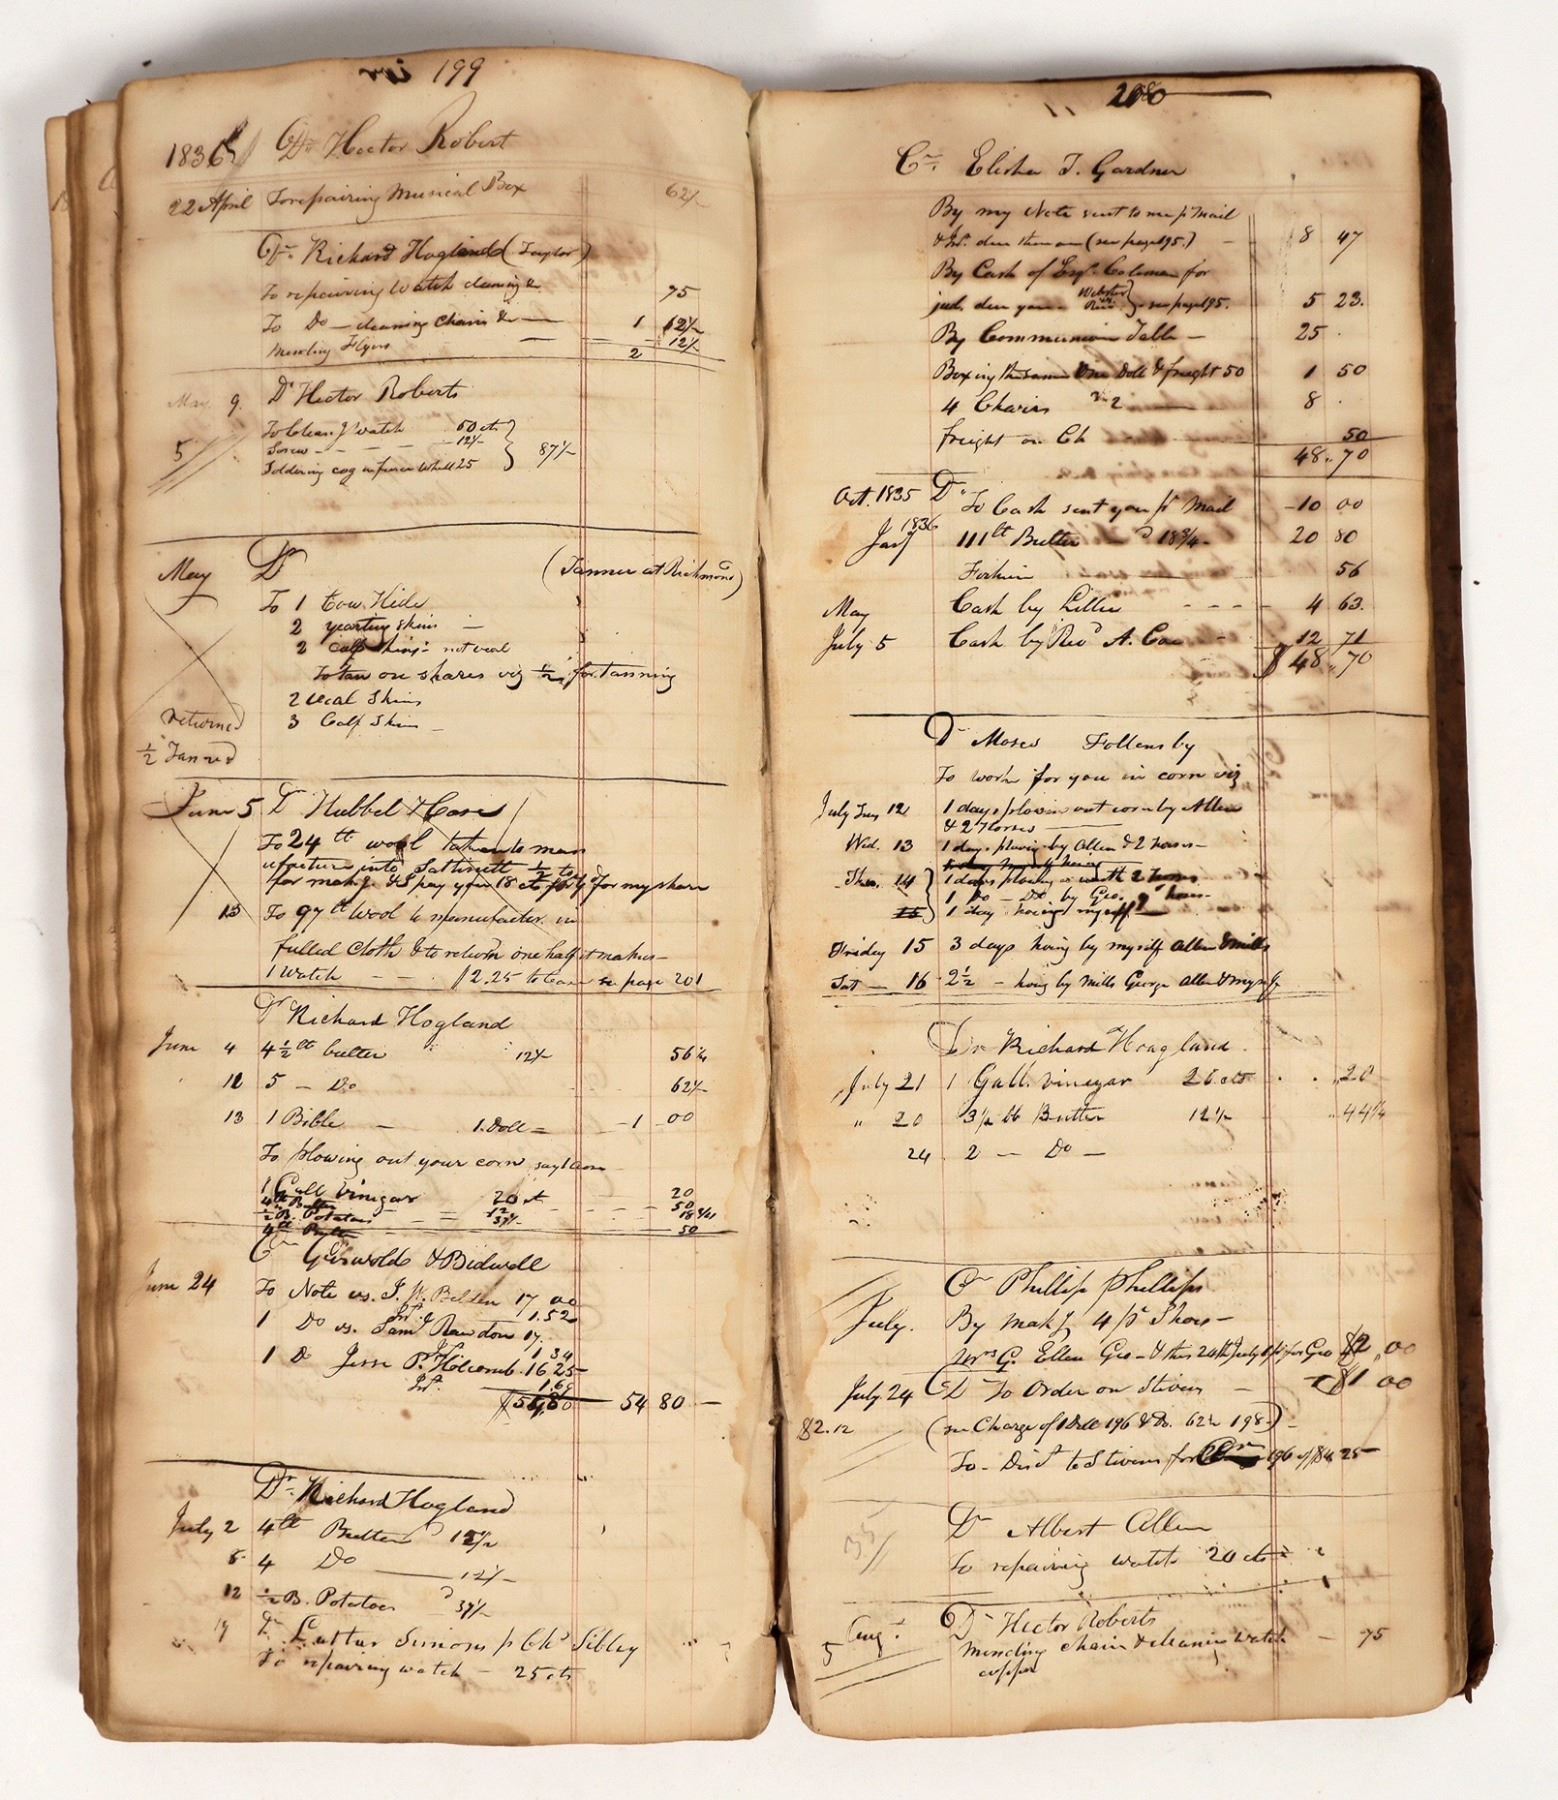 199
1836 Dr Hector Robert
22 April To repairing Musical Box 62½
Dr. Richard Hogland (Taylor)
To repairing Watch cleaning & 75
To Do — cleaning Chain & — 1 12½
Mending Flyer — 12½
2
May 9. Dr Hector Roberts
To Clean.g watch 50 cts
Screw - - - 12½ 87½
5 Soldering cog in fusee Whell 25
May Dr (Tanner at Richmond)
To 1 Cow Hide
2 yearling skins —
2 calf skins - not veal
To tan on shares viz ½ for tanning
2 veal Skins
returned 3 Calf Skins
½ Tanned
June 5 Dr Hubbel & Case
To 24 lb wool taken to man
ufacture into Sattinett ½ to
for mak.g & I pay you 18 cts for my share
15 To 97 lb Wool to manufacter in
fulled Cloth & to return one half it makes —
1 Watch - - $2.25 to Case see page 201
Dr Richard Hogland
June 4 4½ lb butter 12½ 56¼
12 5 — Do 62½
13 1 Bible — 1. Doll = 1 00
To plowing out your corn
1 Gall Vinegar 20 ct 20
4 lb Butter 12½ 50
½ B. Potatoes 37½ 18¾
4 lb Butter 50
Cr Griswold & Bidwell
June 24 To Note vs. J. W. Belden 17 00
Int. 1.52
1 Do vs. Saml Rawdon 17.
Int. 1 34
1 Do Jesse P. Holcomb. 16 25
Int. 1.69
$54,80 — 54 80 —
Dr. Richard Hogland
July 2 4 lb Butter 12½
8 4 Do — 12½
12 ½ B. Potatoes 37½
19 Dr Luther Simons Sibley
To repairing watch — 25 cts
200
Cr. Elisha T. Gardner
By my Note sent to me pr Mail
& Int. due thereon (see page 195.) — 8 47
By Cash of Esqr. Coleman for
jud. due you Webster see page 195. 5 23.
By Communion Table — 25 .
Boxing the same One Doll & freight 50 1 50
4 Chairs 2 — 8 .
freight on Ch 50
48. 70
Oct. 1835 Dr To Cash sent you pr Mail 10 00
1836
Jany 111 lb Butter 18¾ 20 80
Ferkin 56
May Cash by Lillie - - - 4 63.
July 5 Cash by Revd A. Coe 12 71
$48. 70
Dr Moses Follensby
To work for you in corn viz
July Tues 12 1 days plowin out corn by Allen
& 2 Horses
Wed. 13 1 days plowig by Allen & 2 horses —
Thurs. 14 1 days plowing with 2 horses
1 Do — Do by Geo. horse
15 1 day hoing myself —
Friday 15 3 days hoing by myself Allen & Mills
Sat — 16 2½ — hoing by Mills George Allen & myself
Dr Richard Hoagland.
July 21 1 Gall. Vinegar 20 cts . . " 20
" 20 3½ lb Butter 12½ " 44¼
24 2 — Do —
Cr Phillip Phillips
July. By mak.g 4 pr Shoes —
Mrs G. Ellen Geo — & this 24th July 1 pr for Geo $2,00
July 24 Dr To Order on Stivers — $1 00
$2.12 (see Charge of 1 Doll 196 & Do. 62½ 198.) —
To — Disct to Stivers for 196 of $4 25
Dr Albert Allen
To repairing watch 20 cts
Aug. Dr Hector Roberts
5 Mending chain & cleaning watch — 75